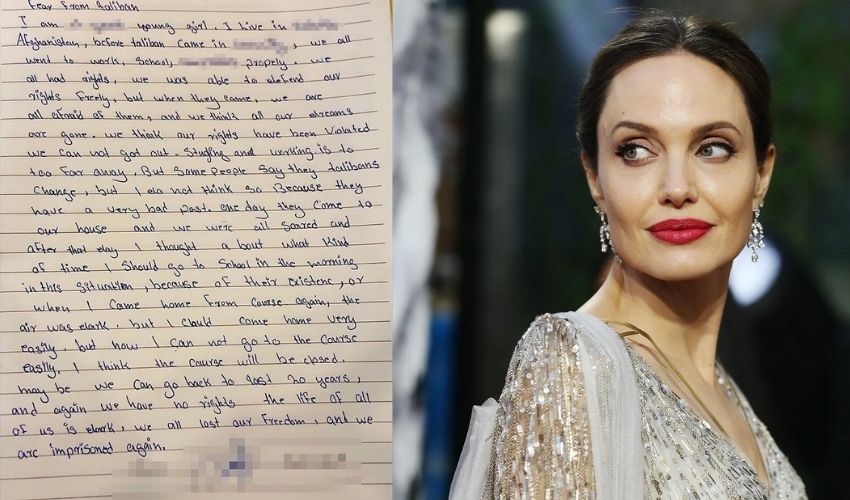 Fear From taliban
I am young girl. I live in
Afghanistan, before taliban came in , we all
went to work, school, propely. we
all had rights, we was able to defend our
rights freely, but when they came, we are
all afraid of them, and we think all our dreams
are gone. we think our rights have been violated
we can not got out. Studying and working is to
too far away. But Some people Say they talibans
Change, but I do not think so Because they
have a very bad past. one day they come to
our house and we were all scared and
after that day I thought a bout what kind
of time I Should go to School in the morning
in this situation, because of their existenc, or
when I Came home from course again, the
air was dark. but I could come home very
easily. but how I can not go to the course
easily. I think the course will be closed.
may be we can go back to lost 20 years,
and again we have no rights the life of all
of us is dark, we all lost our freedom, and we
are imprisoned again.